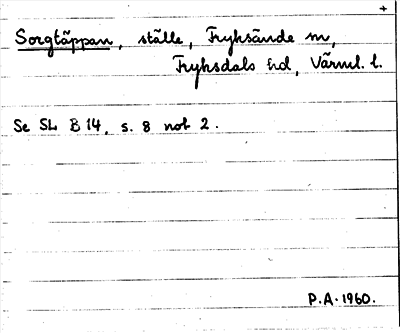 +
Sorgtäppan, ställe, Fryksände sn,
Fryksdals hd, Värml. l.
Se SL B 14, s. 8 not 2.
P.A. 1960.